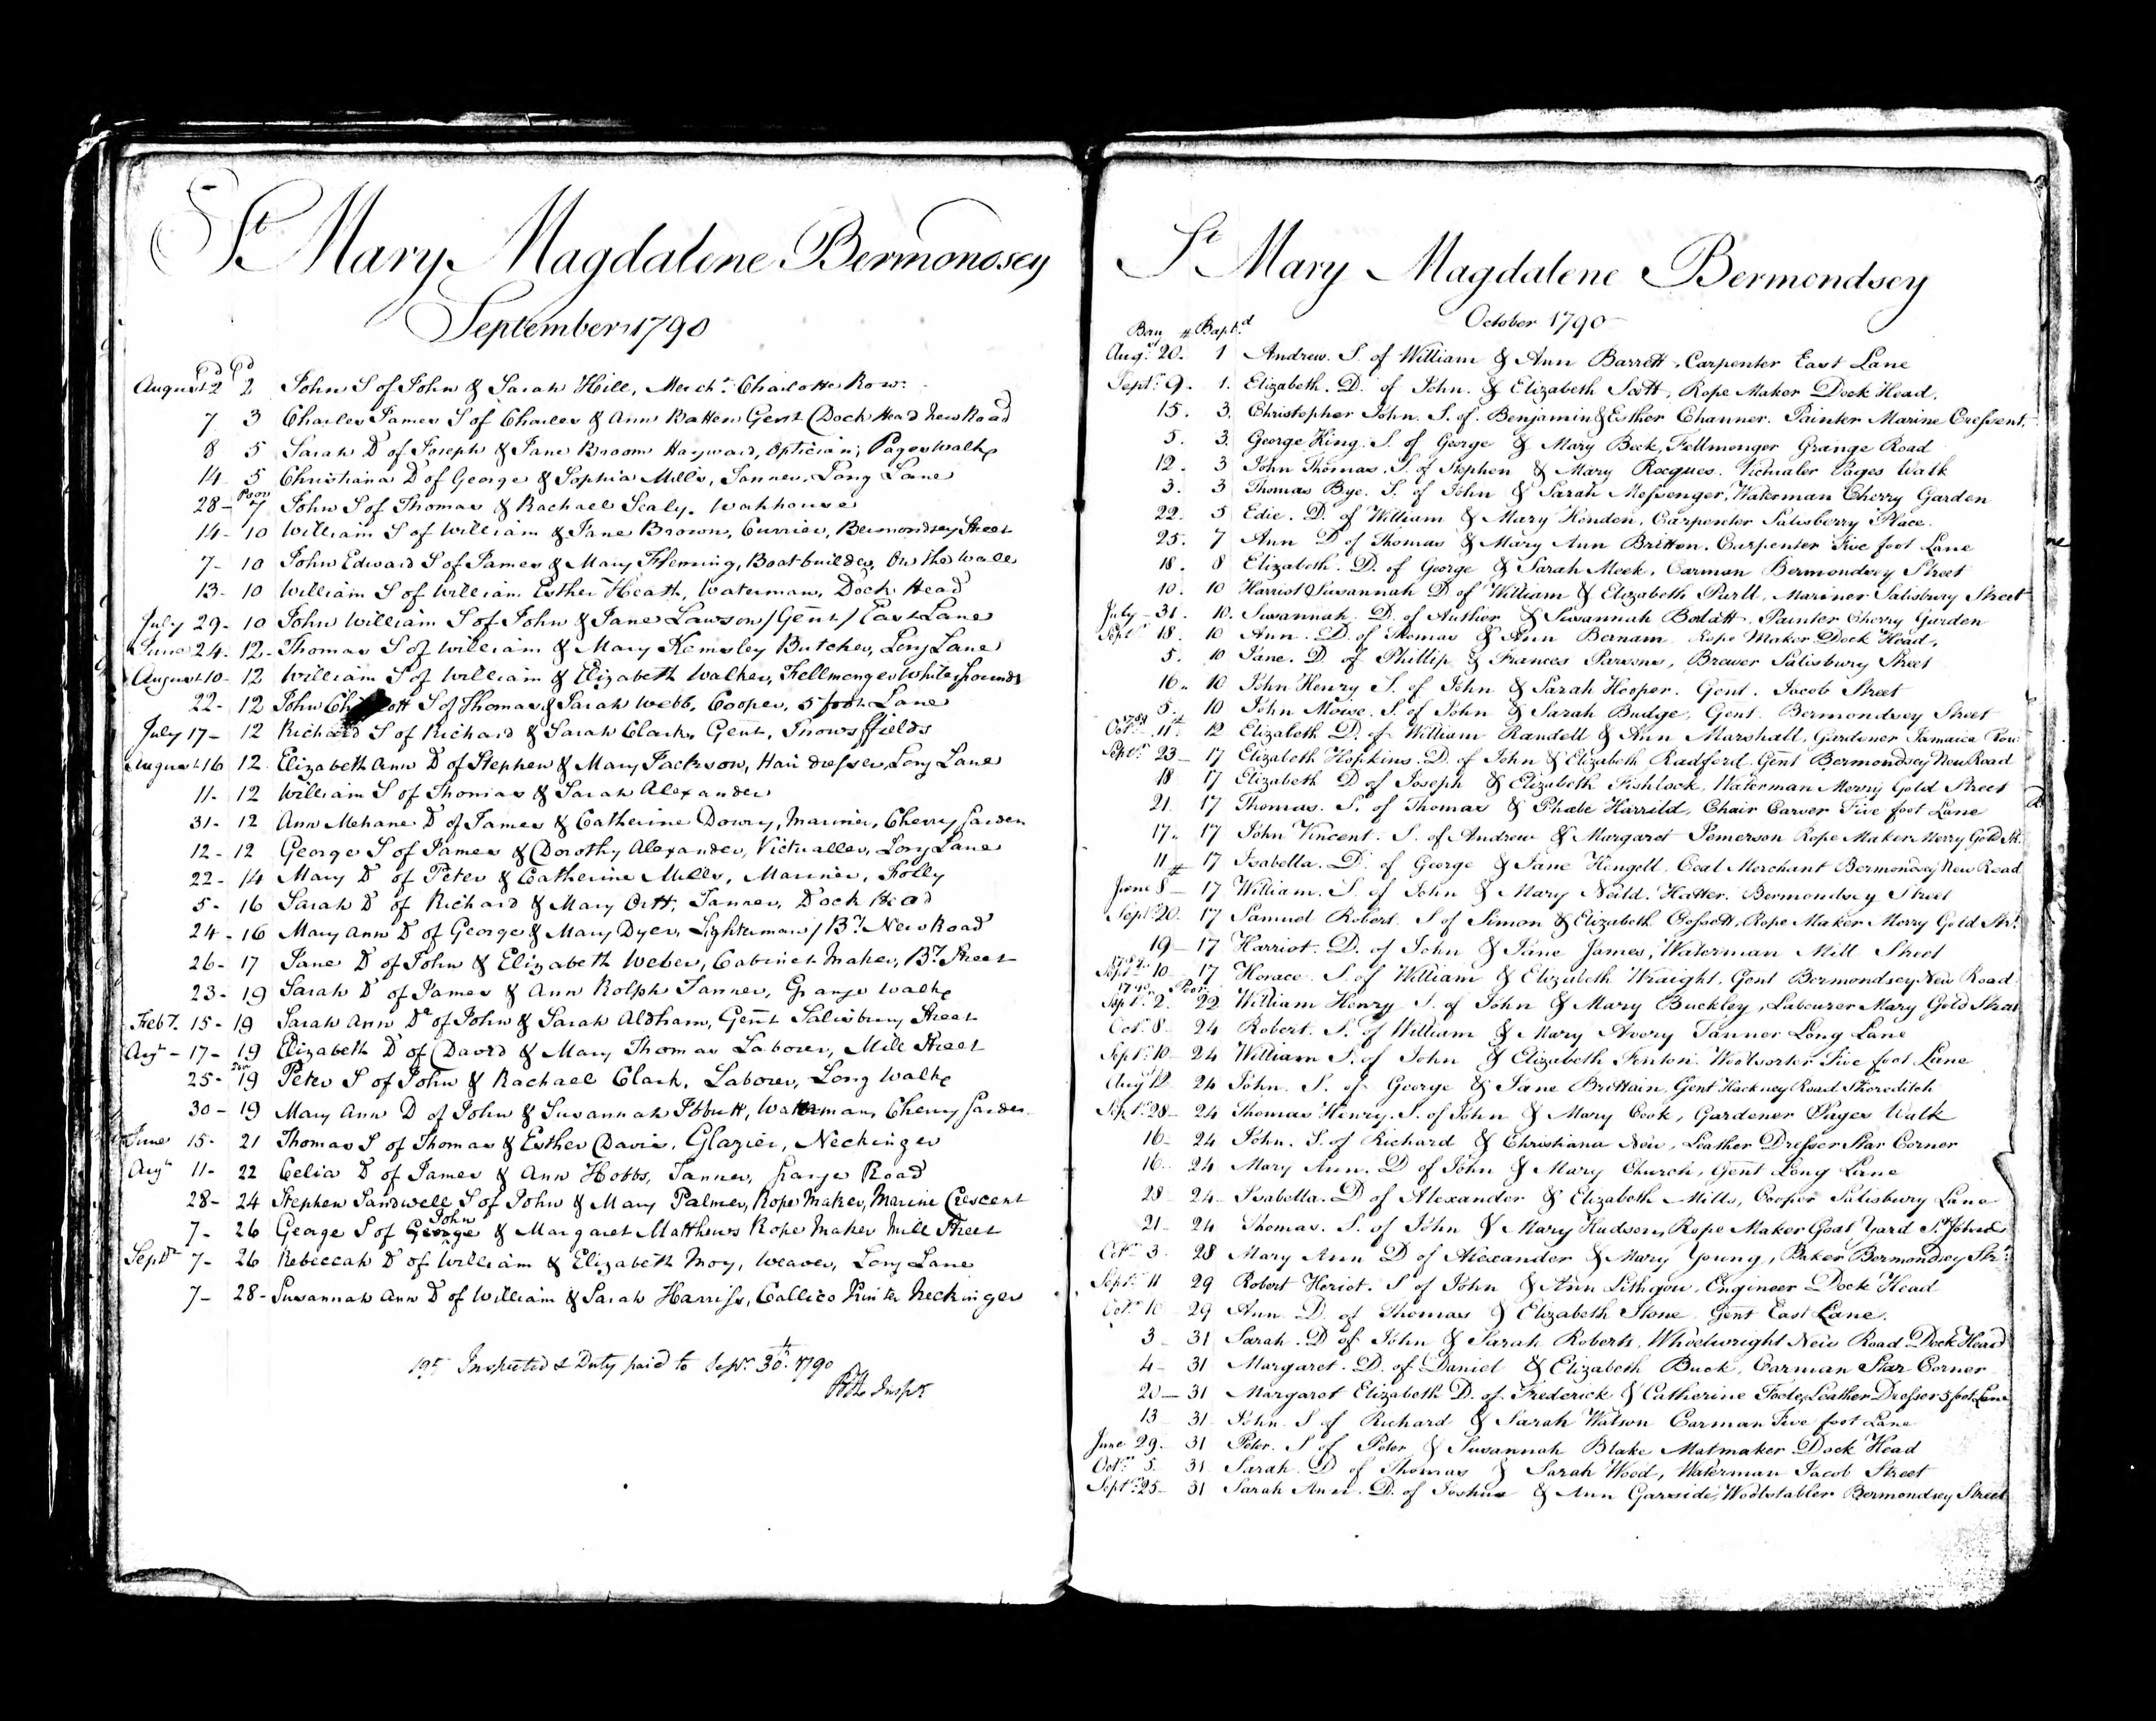 St Mary Magdalene Bermondsey
September 1790
August 2 2 John S of John & Sarah Hill, Mercht Charlotte Row
7 3 Charles James S of Charles & Ann Batten Gent Dock Head New Road
8 5 Sarah D of Joseph & Jane Broom Hayward, Optician, Pages Walk
14 5 Christiana D of George & Sophia Mills, Tanner, Long Lane
28 - Poor 7 John S of Thomas & Rachael Sealy. Workhouse
14 - 10 William S of William & Jane Brown, Currier, Bermondsey Street
7 - 10 John Edward S of James & Mary Fleming, Boatbuilder, On the Wall
13 - 10 William S of William Esther Heath, Waterman, Dock Head
July 29 - 10 John William S of John & Jane Lawson / Gent / East Lane
June 24 - 12 - Thomas S of William & Mary Kemsley Butcher, Long Lane
August 10 - 12 William S of William & Elizabeth Walker, Fellmonger White Grounds
22 - 12 John S of Thomas & Sarah Webb, Cooper, 5 foot Lane
July 17 - 12 Richard S of Richard & Sarah Clark, Gent, Snows ffields
August 16 12 Elizabeth Ann D of Stephen & Mary Jackson, Hair dresser, Long Lane
11 - 12 William S of Thomas & Sarah Alexander
31 - 12 Ann Mehane D of James & Catherine Dowry, Mariner, Cherry Garden
12 - 12 George S of James & Dorothy Alexander, Victualler, Long Lane
22 - 14 Mary D of Peter & Catherine Mills, Mariner, Folly
5 - 16 Sarah D of Richard & Mary Ortt, Tanner, Dock Head
24 - 16 Mary Ann D of George & Mary Dyer, Lighterman / By New Road
26 - 17 Jane D of John & Elizabeth Weber, Cabinet Maker, By Street
23 - 19 Sarah D of James & Ann Rolph Tanner, Grange Walk
Feby 15 - 19 Sarah Ann Dr of John & Sarah Aldham, Gent Salisbury Street
Augt - 17 - 19 Elizabeth D of David & Mary Thomas Laborer, Mill Street
25 - 19 Peter S of John & Rachael Clark, Laborer, Long Walk
30 - 19 Mary Ann D of John & Susannah Ibbutt, Waterman, Cherry Garden
June 15 - 21 Thomas S of Thomas & Esther Davis, Glazier, Neckinger
Augt 11 - 22 Celia D of James & Ann Hobbs, Tanner, Grange Road
28 - 24 Stephen Sandwell S of John & Mary Palmer, Rope Maker, Marine Crescent
7 - 26 George S of George John & Margaret Matthews Rope Maker Mill Street
Septr 7 - 26 Rebeccah D of William & Elizabeth Moy, Weaver, Long Lane
7 - 28 - Susannah Ann D of William & Sarah Harriss, Callico Printer Neckinger
195 Inspected & Duty paid to Sepr 30th 1790
Inspr
St Mary Magdalene Bermondsey
October 1790
Born Baptd
Augst 20. 1 Andrew. S. of William & Ann Barrett, Carpenter East Lane
Septr 9. 1. Elizabeth. D. of John. & Elizabeth Scott, Rope Maker Dock Head.
15. 3. Christopher John. S. of. Benjamin & Esther Channer. Painter Marine Cressent.
5. 3. George King. S. of George & Mary Beck, Fellmonger Grange Road
12. 3 John Thomas. S. of Stephen & Mary Rocques. Victualer Pages Walk
3. 3 Thomas Bye. S. of John & Sarah Messenger, Waterman Cherry Garden
22. 5 Edie. D. of William & Mary Henden, Carpenter Salisberry Place.
25. 7 Ann D of Thomas & Mary Ann Britton. Carpenter Five foot Lane
18. 8 Elizabeth. D. of George & Sarah Meek, Carman Bermondsey Street
10. 10 Harriot Susannah D of William & Elizabeth Purll, Mariner Salisbury Street
July - 31. 10. Susannah. D. of Authier & Susannah Bodatt, Painter Cherry Garden
Septr 18. 10 Ann. D. of Thomas & Ann Bernam Rope Maker Dock Head.
5. 10 Jane. D. of Phillip & Frances Parsons, Brewer Salisbury Street
16. 10 John Henry S. of John & Sarah Hooper. Gent. Jacob Street
5. 10 John Moise. S. of John & Sarah Budge, Gent. Bermondsey Street
Octr 11th 12 Elizabeth D. of William Randell & Ann Marshall, Gardener Jamaica Row
Septr 23 - 17 Elizabeth Hopkins. D. of John & Elizabeth Radford. Gent Bermondsey New Road
18 17 Elizabeth D of Joseph & Elizabeth Fishlock, Waterman Merry Gold Street
21. 17 Thomas. S. of Thomas & Phabe Harrild, Chair Carver Five foot Lane
17. 17 John Vincent. S. of Andrew & Margaret Somerson Rope Maker Merry Gold St.
11 17 Isabella. D. of George & Jane Kingell, Coal Merchant Bermondsey New Road
June 8th - 17 William. S. of John & Mary Neild. Hatter. Bermondsey Street
Septr 20. 17 Samuel Robert. S of Simon & Elizabeth Cossett, Rope Maker Merry Gold Str.
19 - 17 Harriot. D. of John & Jane James, Waterman Mill Street
1789 Septr 10 - 17 Horace. S. of William & Elizabeth Wraight, Gent Bermondsey New Road
1790 Septr 2. Poor 22 William Henry S. of John & Mary Buckley, Labourer Mary Gold Street
Octr 8 - 24 Robert. S. of William & Mary Avery Tanner Long Lane
Septr 10 - 24 William S. of John & Elizabeth Fenton. Woolsorter Five foot Lane
Augt 12 24 John. S. of George & Jane Brettain, Gent Hackney Road Shoreditch
Septr 28 - 24 Thomas Henry. S. of John & Mary Cook, Gardener Pages Walk
16 - 24 John. S. of Richard & Christiana New, Leather Dresser Star Corner
16 - 24 Mary Ann. D of John & Mary Church, Gent Long Lane
28 - 24 - Isabella. D of Alexander & Elizabeth Mills, Cooper Salisbury Lane
21 - 24 Thomas. S. of John & Mary Hudson, Rope Maker Goat Yard St Johns
Octr 3 - 28 Mary Ann D of Alexander & Mary Young, Baker Bermondsey Str.
Septr 11 29 Robert Heriot. S of John & Ann Lithgow, Engineer Dock Head
Octr 10 - 29 Ann. D. of Thomas & Elizabeth Stone. Gent East Lane.
3 - 31 Sarah. D of John & Sarah Roberts, Wheelwright New Road Dock Head
4 - 31 Margaret. D. of Daniel & Elizabeth Buck, Carman Star Corner
20 - 31 Margaret Elizabeth D. of. Frederick & Catherine Tooley Leather Dresser 5 foot Lane
13 - 31 John. S of Richard & Sarah Watson Carman Five foot Lane
June 29. 31 Peter. S of Peter & Susannah Blake Matmaker Dock Head
Octr 5 - 31 Sarah. D of Thomas & Sarah Wood, Waterman Jacob Street
Septr 25 - 31 Sarah Ann. D. of Joshua & Ann Garside, Woolstabler Bermondsey Street